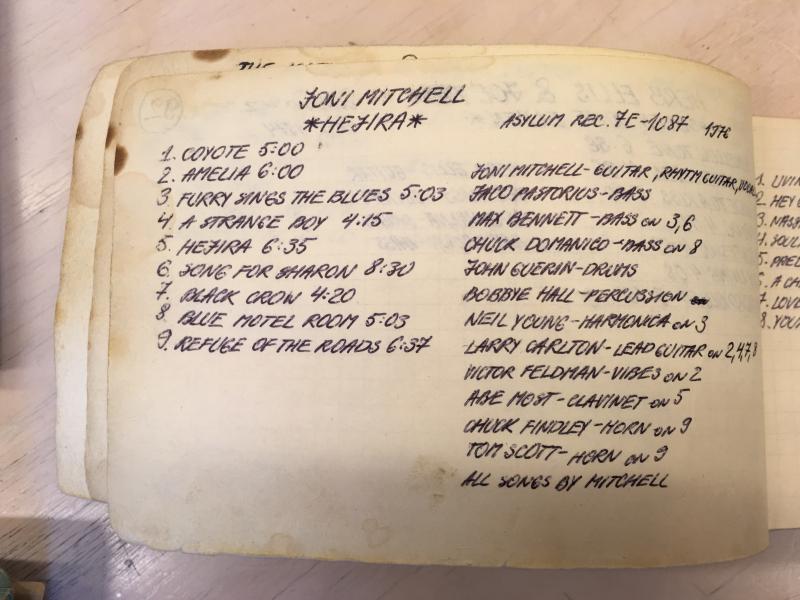 JONI MITCHELL
*HEJIRA*
ASYLUM REC. 7E-1087 1976
1. COYOTE 5:00
2. AMELIA 6:00
3. FURRY SINGS THE BLUES 5:03
4. A STRANGE BOY 4:15
5. HEJIRA 6:35
6. SONG FOR SHARON 8:30
7. BLACK CROW 4:20
8. BLUE MOTEL ROOM 5:03
9. REFUGE OF THE ROADS 6:37
JONI MITCHELL-GUITAR, RHYTM GUITAR,
JACO PASTORIUS-BASS
MAX BENNETT-BASS ON 3,6
CHUCK DOMANICO-BASS ON 8
JOHN GUERIN-DRUMS
BOBBYE HALL-PERCUSSION
NEIL YOUNG-HARMONICA ON 3
LARRY CARLTON-LEAD GUITAR ON 2,4,7,8
VICTOR FELDMAN-VIBES ON 2
ABE MOST-CLAVINET ON 5
CHUCK FINDLEY-HORN ON 9
TOM SCOTT-HORN ON 9
ALL SONGS BY MITCHELL
1.
2. HEY
3.
4.
5.
6. A
7.
8.